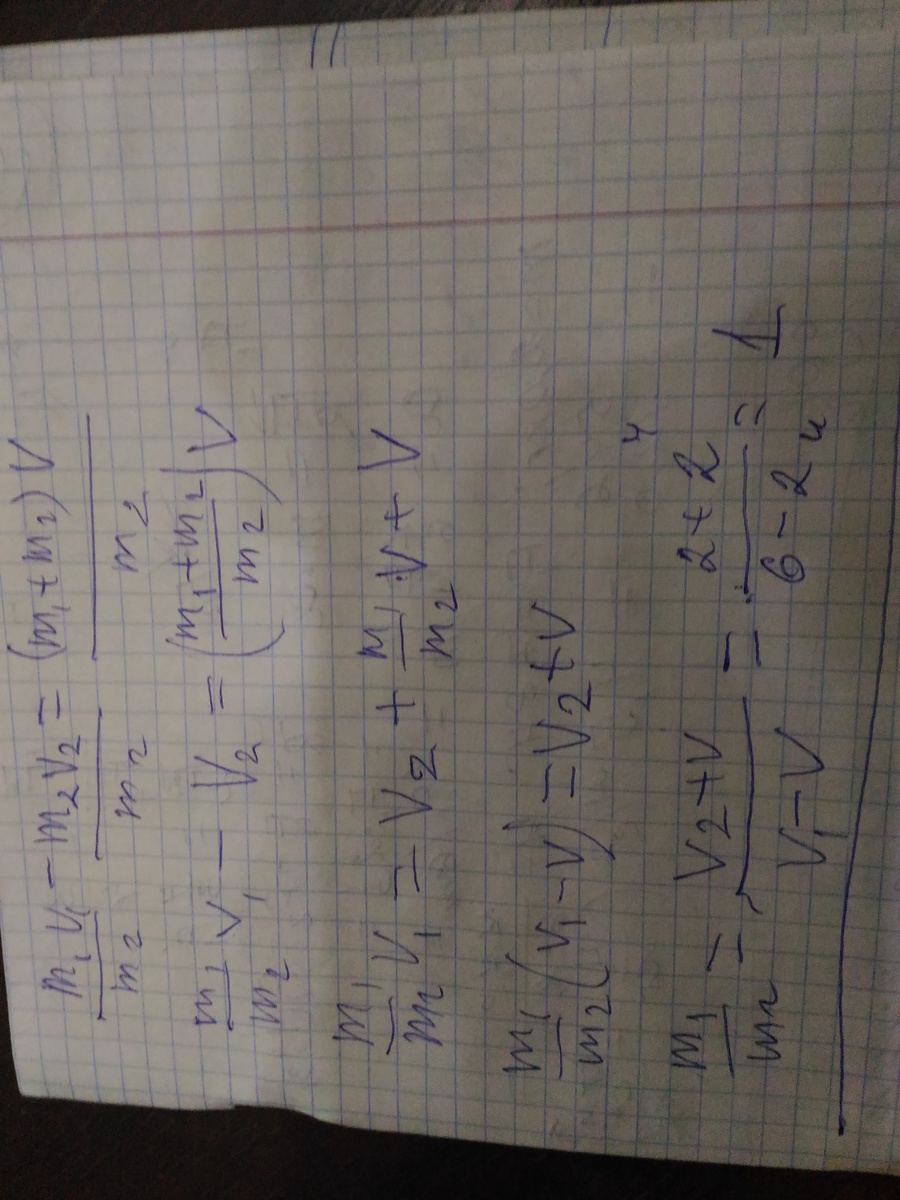 m₁v₁/m₂ - m₂v₂/m₂ = (m₁+m₂)v/m₂
m₁/m₂ v₁ - v₂ = ((m₁+m₂)/m₂)v
m₁/m₂ v₁ = v₂ + m₁/m₂ v + v
m₁/m₂(v₁-v) = v₂+v
m₁/m₂ = (v₂+v)/(v₁-v) = (2+2)/(6-2) = 1